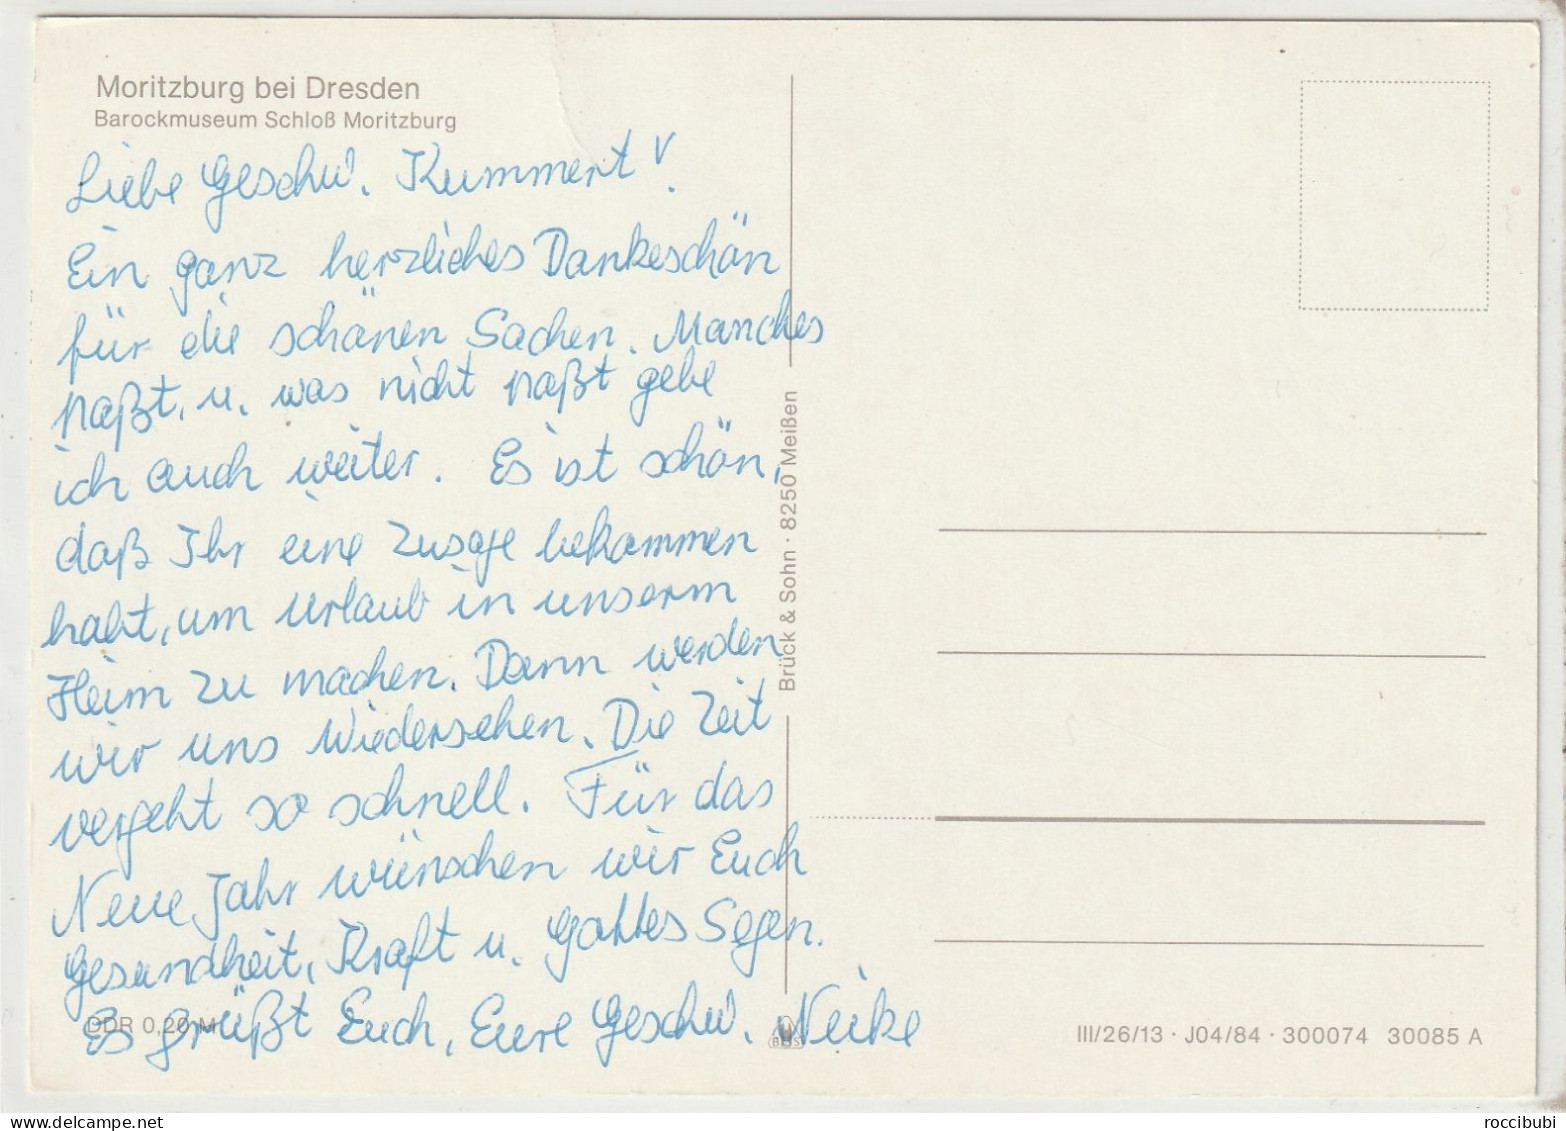 Moritzburg bei Dresden
Barockmuseum Schloß Moritzburg
Liebe Geschw. Kummert!
Ein ganz herzliches Dankeschön
für die schönen Sachen. Manches
paßt, u. was nicht paßt gebe
ich auch weiter. Es ist schön,
daß Ihr eine Zusage bekommen
habt, um Urlaub in unserm
Heim zu machen. Dann werden
wir uns Wiedersehen. Die Zeit
vergeht so schnell. Für das
Neue Jahr wünschen wir Euch
Gesundheit, Kraft u. Gottes Segen.
Es grüßt Euch, Eure Geschw. Neike
DDR 0,20 M
Brück & Sohn · 8250 Meißen
B&S
III/26/13 · J04/84 · 300074 30085 A
roccibubi